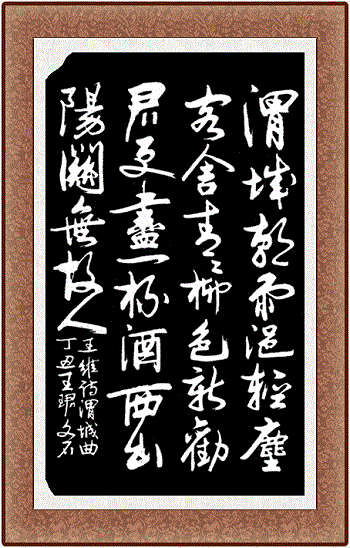 渭城朝雨浥輕塵
客舍青々柳色新勸
君更盡一杯酒西出
陽關無故人
王維詩渭城曲
丁丑王